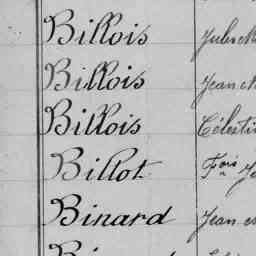 Billois Jules
Billois Jean
Billois Célesti
Billot Fois
Binard Jean